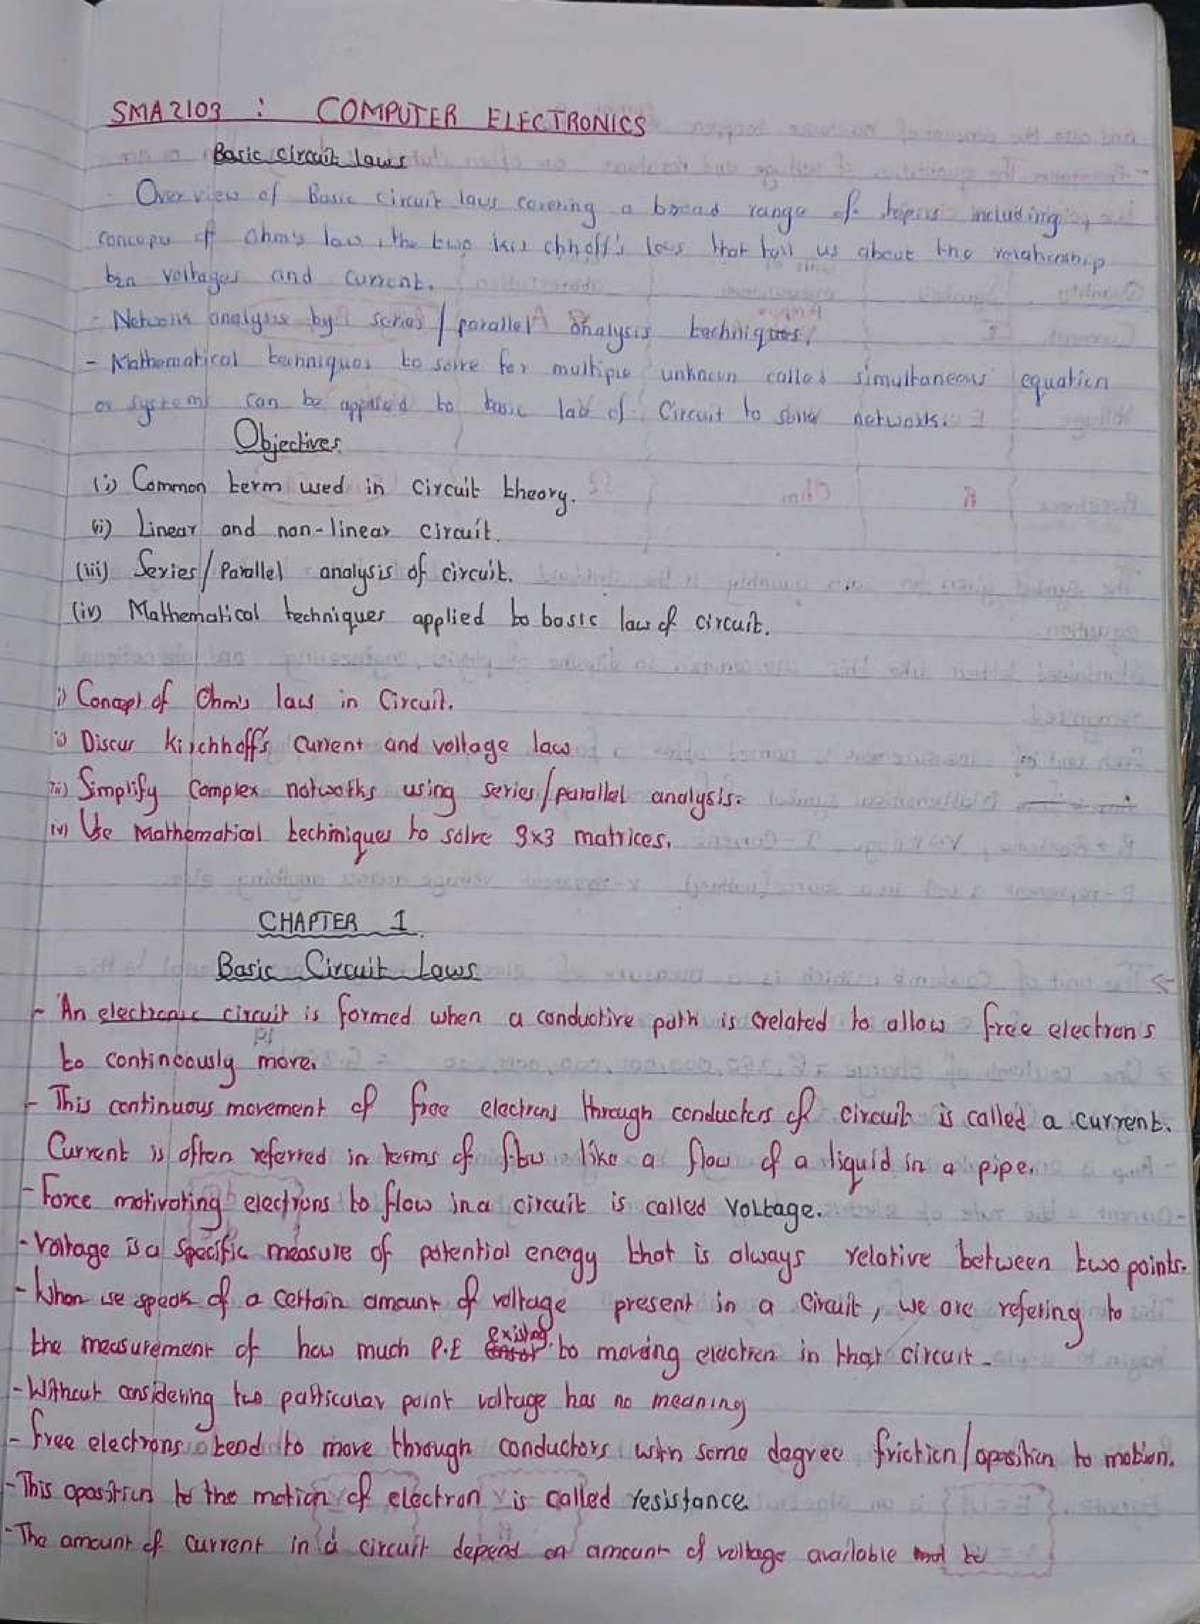 SMA2103 : COMPUTER ELECTRONICS
Basic circuit laws
- Overview of Basic circuit laws covering a broad range of topics including
concepts of Ohm's law, the two kirchhoff's laws that tell us about the relationship
btn voltages and current.
- Network analysis by series/parallel analysis techniques.
- Mathematical techniques to solve for multiple unknown called simultaneous equation
or systems can be applied to basic law of circuit to solve networks.
Objectives
(i) Common term used in circuit theory.
(ii) Linear and non-linear circuit.
(iii) Series/Parallel analysis of circuit.
(iv) Mathematical techniques applied to basic law of circuit.
i) Concept of Ohm's law in Circuit.
ii) Discus kirchhoff's current and voltage law
iii) Simplify complex networks using series/parallel analysis.
iv) Use Mathematical techiniques to solve 3x3 matrices.
CHAPTER 1
Basic Circuit Laws
- An electronic circuit is formed when a conductive path is created to allow free electrons
to continously move.
- This continuous movement of free electrons through conductors of circuit is called a current.
Current is often referred in terms of flow like a flow of a liquid in a pipe.
- Force motivating electrons to flow in a circuit is called voltage.
- Voltage is a specific measure of potential energy that is always relative between two points.
- When we speak of a certain amount of voltage present in a circuit, we are refering to
the measurement of how much P.E existing to moving electron in that circuit.
- Without considering two particular point voltage has no meaning
- Free electrons tend to move through conductors with some degree friction/oposition to motion.
- This oposition to the motion of electron is called resistance
- The amount of current in a circuit depend on amount of voltage available